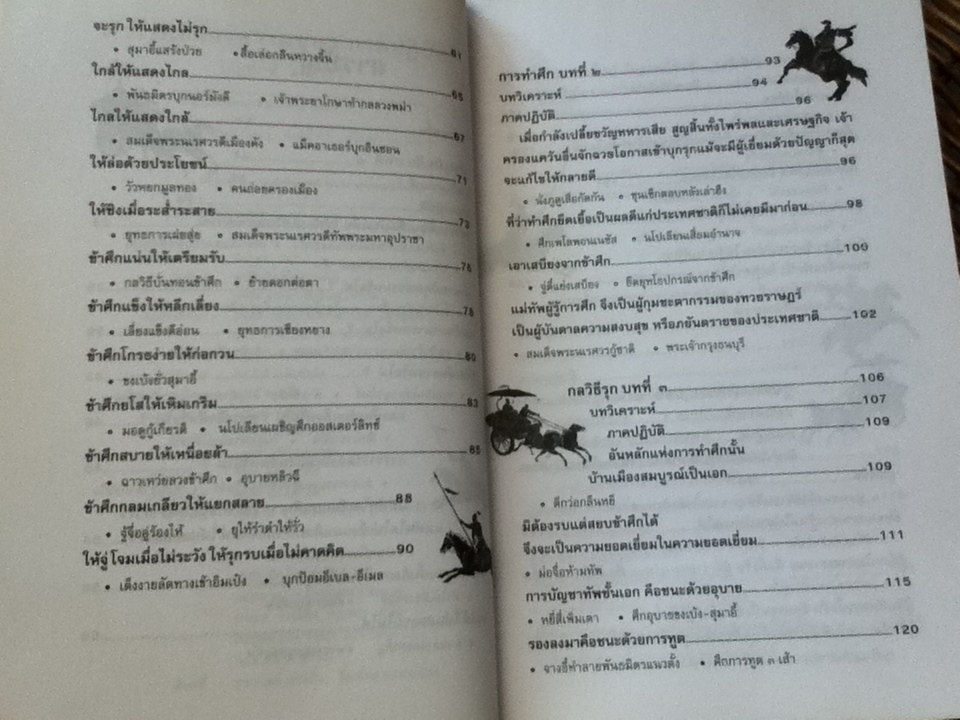 จะรุก ให้แสดงไม่รุก 61
• สุมาอี้แสร้งป่วย • สื้อเล่อกลืนหวางจิ้น
ใกล้ให้แสดงไกล 65
• พันธมิตรบุกนอร์มังดี • เจ้าพระยาโกษาทำกลลวงพม่า
ไกลให้แสดงใกล้ 67
• สมเด็จพระนเรศวรตีเมืองคัง • แม็คอาเธอร์บุกอินชอน
ให้ล่อด้วยประโยชน์ 71
• วัวพยกมูลทอง • คนถ่อยครองเมือง
ให้ชิงเมื่อระส่ำระสาย 73
• ยุทธการเฝยสุ่ย • สมเด็จพระนเรศวรตีทัพพระมหาอุปราชา
ข้าศึกแน่นให้เตรียมรับ 76
• กลวิธีบั่นทอนข้าศึก • ย้ายดอกต่อตา
ข้าศึกแข็งให้หลีกเลี่ยง 78
• เลี่ยงแข็งตีอ่อน • ยุทธการเซียงหยาง
ข้าศึกโกรธง่ายให้ก่อกวน 80
• ขงเบ้งยั่วสุมาอี้
ข้าศึกยโสให้เหิมเกริม 83
• มอตูกู้เกียรติ • นโปเลียนเผชิญศึกออสเตอร์ลิทซ์
ข้าศึกสบายให้เหนื่อยล้า 85
• ฉาวเหว่ยลวงข้าศึก • อุบายหลิวฉี
ข้าศึกกลมเกลียวให้แยกสลาย 88
• รู้จื่ออู่ร้องไห้ • ยุให้รำตำให้รั่ว
ให้จู่โจมเมื่อไม่ระวัง ให้รุกรบเมื่อไม่คาดคิด 90
• เติ้งงายลัดทางเข้าอิมเป๋ง • บุกป้อมอีเบล-อีเมล
การทำศึก บทที่ ๒ 93
บทวิเคราะห์ 94
ภาคปฏิบัติ 96
เมื่อกำลังเปลี้ยขวัญทหารเสีย สูญสิ้นทั้งไพร่พลและเศรษฐกิจ เจ้า
ครองแคว้นอื่นจักฉวยโอกาสเข้าบุกรุกแม้จะมีผู้เยี่ยมด้วยปัญญาก็สุด
จะแก้ไขให้กลายดี 96
• นั่งภูดูเสือกัดกัน • ซุนเซ็กตอบหลังเล่าฮึง
ที่ว่าทำศึกยืดเยื้อเป็นผลดีแก่ประเทศชาติก็ไม่เคยมีมาก่อน 98
• ศึกเพโลพอนเนซัส • นโปเลียนเสื่อมอำนาจ
เอาเสบียงจากข้าศึก 100
• จู่ตี้แย่งเสบียง • ยึดยุทโธปกรณ์จากข้าศึก
แม่ทัพผู้รู้การศึก จึงเป็นผู้กุมชะตากรรมของทวยราษฎร์
เป็นผู้บันดาลความสงบสุข หรือภยันตรายของประเทศชาติ 102
• สมเด็จพระนเรศวรกู้ชาติ • พระเจ้ากรุงธนบุรี
กลวิธีรุก บทที่ ๓ 106
บทวิเคราะห์ 107
ภาคปฏิบัติ 109
อันหลักแห่งการทำศึกนั้น
บ้านเมืองสมบูรณ์เป็นเอก 109
• ตีกว่อกลืนหยี
มิต้องรบแต่สยบข้าศึกได้
จึงจะเป็นความยอดเยี่ยมในความยอดเยี่ยม 111
• ม่อจื่อห้ามทัพ
การบัญชาทัพชั้นเอก คือชนะด้วยอุบาย 115
• หยีสี่เพิ่มเตา • ศึกอุบายขงเบ้ง-สุมาอี้
รองลงมาคือชนะด้วยการทูต 120
• จางอี๋ทำลายพันธมิตรแนวตั้ง • ศึกการทูต ๓ เส้า